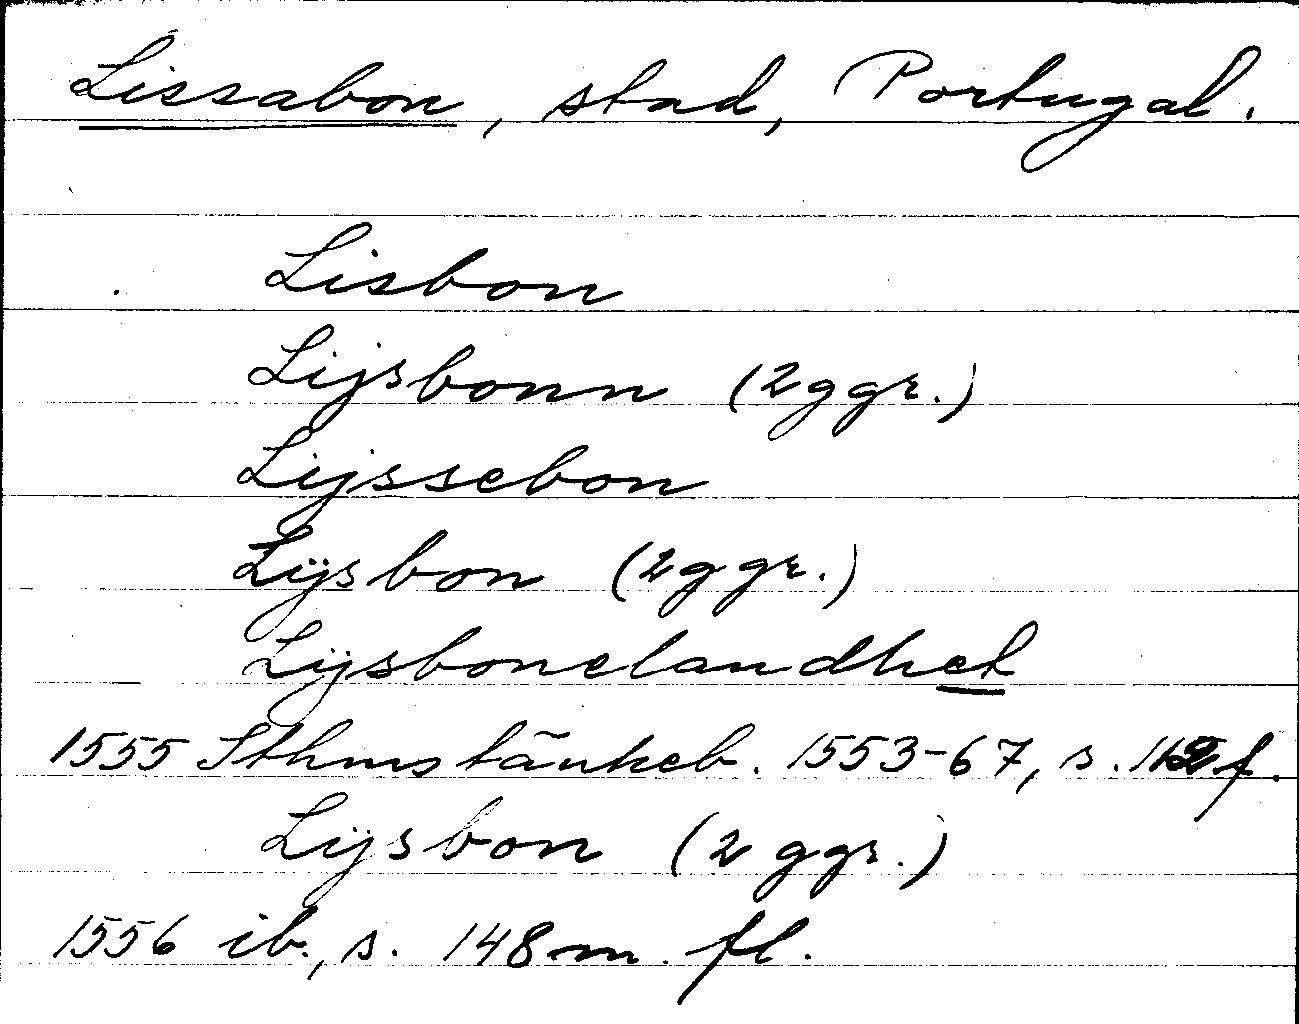 Lissabon, stad, Portugal.
Lisbon
Lijsbonn (2ggr.)
Lijssebon
Lÿsbon (2ggr.)
Lÿsbonelandhet
1555 Sthms tänkeb. 1553-67, s. 112 f.
Lÿsbon (2 ggr.)
1556 ib., s. 148 m. fl.